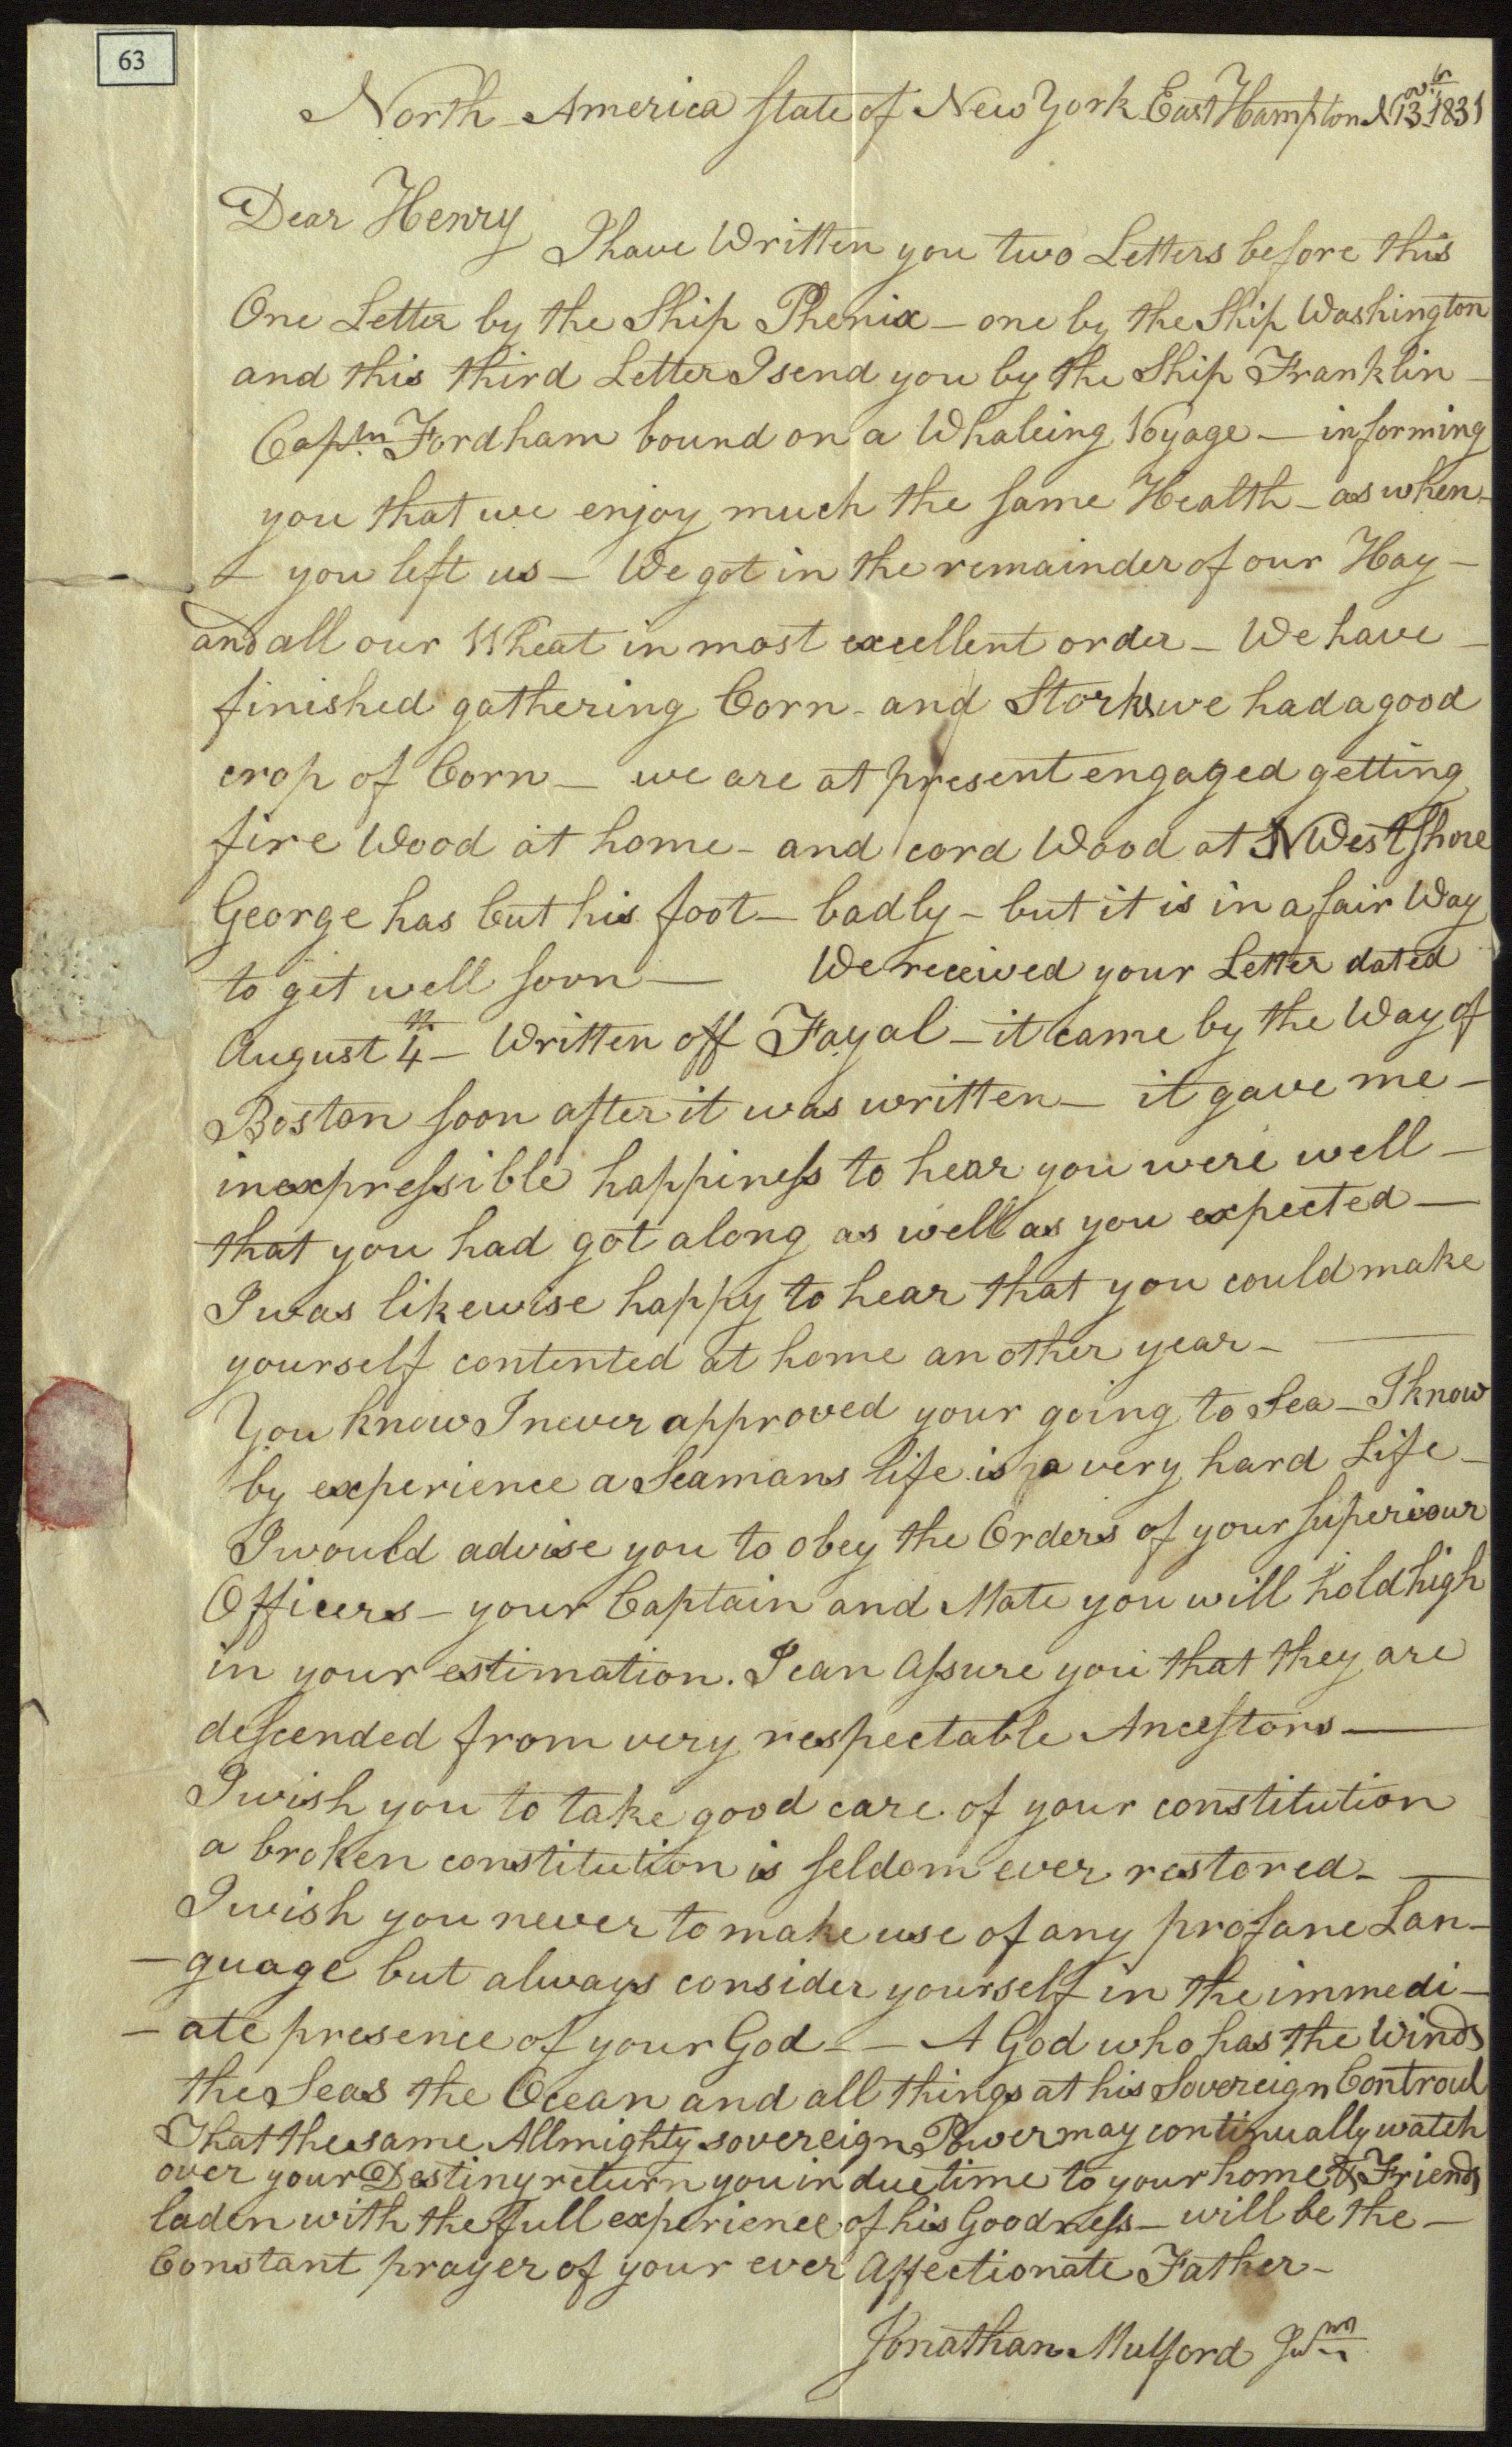 63
North America State of New York East Hampton Novbr 13 1831
Dear Henry I have Written you two Letters before this
One Letter by the Ship Phenix – one by the Ship Washington
and this third Letter I send you by the Ship Franklin –
Captn Fordham bound on a Whaleing Voyage – informing
you that we enjoy much the same Health – as when –
– you left us – We got in the remainder of our Hay –
and all our Wheat in most excellent order – We have –
finished gathering Corn – and Storks we had a good
crop of Corn – we are at present engaged getting
fire Wood at home – and cord Wood at N West Shore
George has Cut his foot – badly – but it is in a fair Way
to git well soon — We received your Letter dated
August 4th – Written off Fayal – it came by the Way of
Boston soon after it was written – it gave me –
inexpressible happiness to hear you were well –
that you had got along as well as you expected —
I was likewise happy to hear that you could make
yourself contented at home another year – —
You know I never approved your going to Sea – I know
by experience a Seamans life is a very hard Life –
I would advise you to obey the Orders of your superiour
Officers – your Captain and Mate you will hold high
in your estimation. I can Assure you that they are
descended from very respectable Ancestors —
I wish you to take good care of your constitution
a broken constitution is seldom ever restored – —
I wish you never to make use of any profane Lan–
–guage but always consider yourself in the immedi–
–ate presence of your God – – A God who has the Winds
the Seas the Ocean and all things at his Sovereign Controul
That the same Allmighty sovereign Power may continually watch
over your Destiny return you in due time to your home & Friends
laden with the full experience of his Goodness – will be the –
Constant prayer of your ever Affectionate Father –
Jonathan Mulford Junr